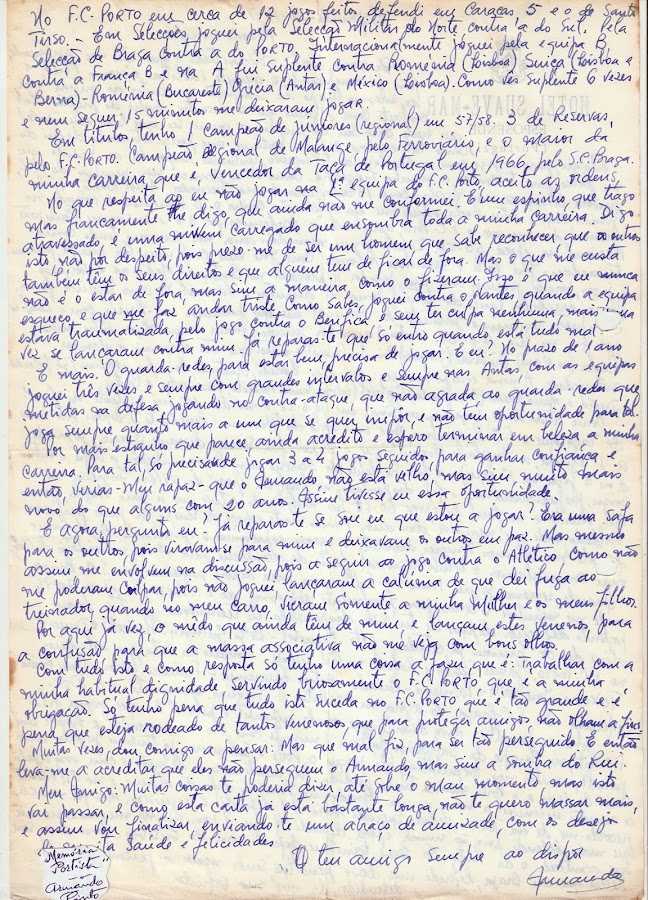 No F.C. PORTO em cerca de 12 jogos feitos defendi em Caracas 5 e o de Santo
Tirso. - Em Selecções joguei pela Selecção Militar do Norte contra a do Sul. Pela
Selecção de Braga contra a do PORTO. Internacionalmente joguei pela equipa B,
contra a França B e na A fui suplente contra Roménia (Lisboa) Suiça (Lisboa e
Berna) - Roménia (Bucareste) Grécia (Antas) e México (Lisboa). Como vês suplente 6 vezes
e nem sequer 15 minutos me deixaram jogar.
Em títulos tenho 1 Campeão de juniores (regional) em 57/58. 3 de Reservas,
pelo F.C. PORTO. Campeão Regional de Malange pelo Ferroviário, e o maior da
minha carreira que é, Vencedor da Taça de Portugal em 1966, pelo S.C. Braga.
No que respeita ao eu não jogar na 1ª equipa do F.C. Porto, aceito as ordens,
mas francamente te digo, que ainda não me conformei. É um espinho, que trago
atravessado, é uma nuvem carregada que ensombra toda a minha carreira. Digo
isto, não por despeito, pois prezo-me de ser um homem que sabe reconhecer, que os outros
também têm os seus direitos e que alguém tem de ficar de fora. Mas o que me custa
não é o estar de fora, mas sim a maneira, como o fizeram. Isso é que eu nunca
esqueço, e que me faz andar triste. Como sabes, joguei contra o Nantes, quando a equipa
estava traumatizada pelo jogo contra o Benfica e sem ter culpa nenhuma, mais uma
vez se lançaram contra mim. Já reparaste que só entro quando, está tudo mal.
E mais. O guarda-redes, para estar bem, precisa de jogar. E eu? No prazo de 1 ano
joguei três vezes e sempre com grandes intervalos e sempre nas Antas, com as equipas
metidas na defesa, jogando no contra-ataque, que não agrada ao guarda-redes que
joga sempre quanto mais a um que se quer impôr, e não tem oportunidade para tal.
Por mais estranho que pareça, ainda acredito e espero terminar em beleza, a minha
carreira. Para tal, só precisava de jogar 3 a 4 jogos seguidos, para ganhar confiança e
então, verias - Meu rapaz - que o Armando não está velho, mas sim, muito mais
novo do que alguns com 20 anos. Assim tivesse eu essa oportunidade.
E agora, pergunto eu? Já reparaste se sou eu que estou a jogar? Era uma safa
para os outros, pois viravam-se para mim e deixavam os outros em paz. Mas mesmo
assim me envolvem na discussão, pois a seguir ao jogo contra o Atlético como não
me poderam culpar, pois não joguei, lançaram a calúnia de que dei fuga ao
treinador, quando no meu carro, vieram somente a minha mulher e os meus filhos.
Por aqui já vez, o mêdo que ainda têm de mim, e lançam, estes venenos, para
a confusão, para que a massa associativa não me veja com bons olhos.
Com tudo isto e como resposta só tenho uma coisa a fazer, que é: trabalhar com a
minha habitual dignidade servindo briosamente o F.C. PORTO, que é a minha
obrigação. Só tenho pena que tudo isto suceda no F.C. PORTO que é tão grande e é
pena, que esteja rodeado de tantos venenosos, que para proteger amigos, não olham a fins.
Muitas vezes, dou comigo a pensar: Mas que mal fiz, para ser tão perseguido. E então
leva-me a acreditar, que eles não perseguem o Armando, mas sim a sombra do Rui.
Meu Amigo: Muitas coisas te poderia dizer, até sobre o mau momento, mas isto
vai passar, e como esta carta já está bastante longa, não te quero massar mais,
e assim vou finalizar, enviando-te um abraço de amizade, com os desejos
muita Saúde e felicidades
O teu amigo sempre ao dispor
Armando
"Memória
Portista"
-
Armando
Pinto